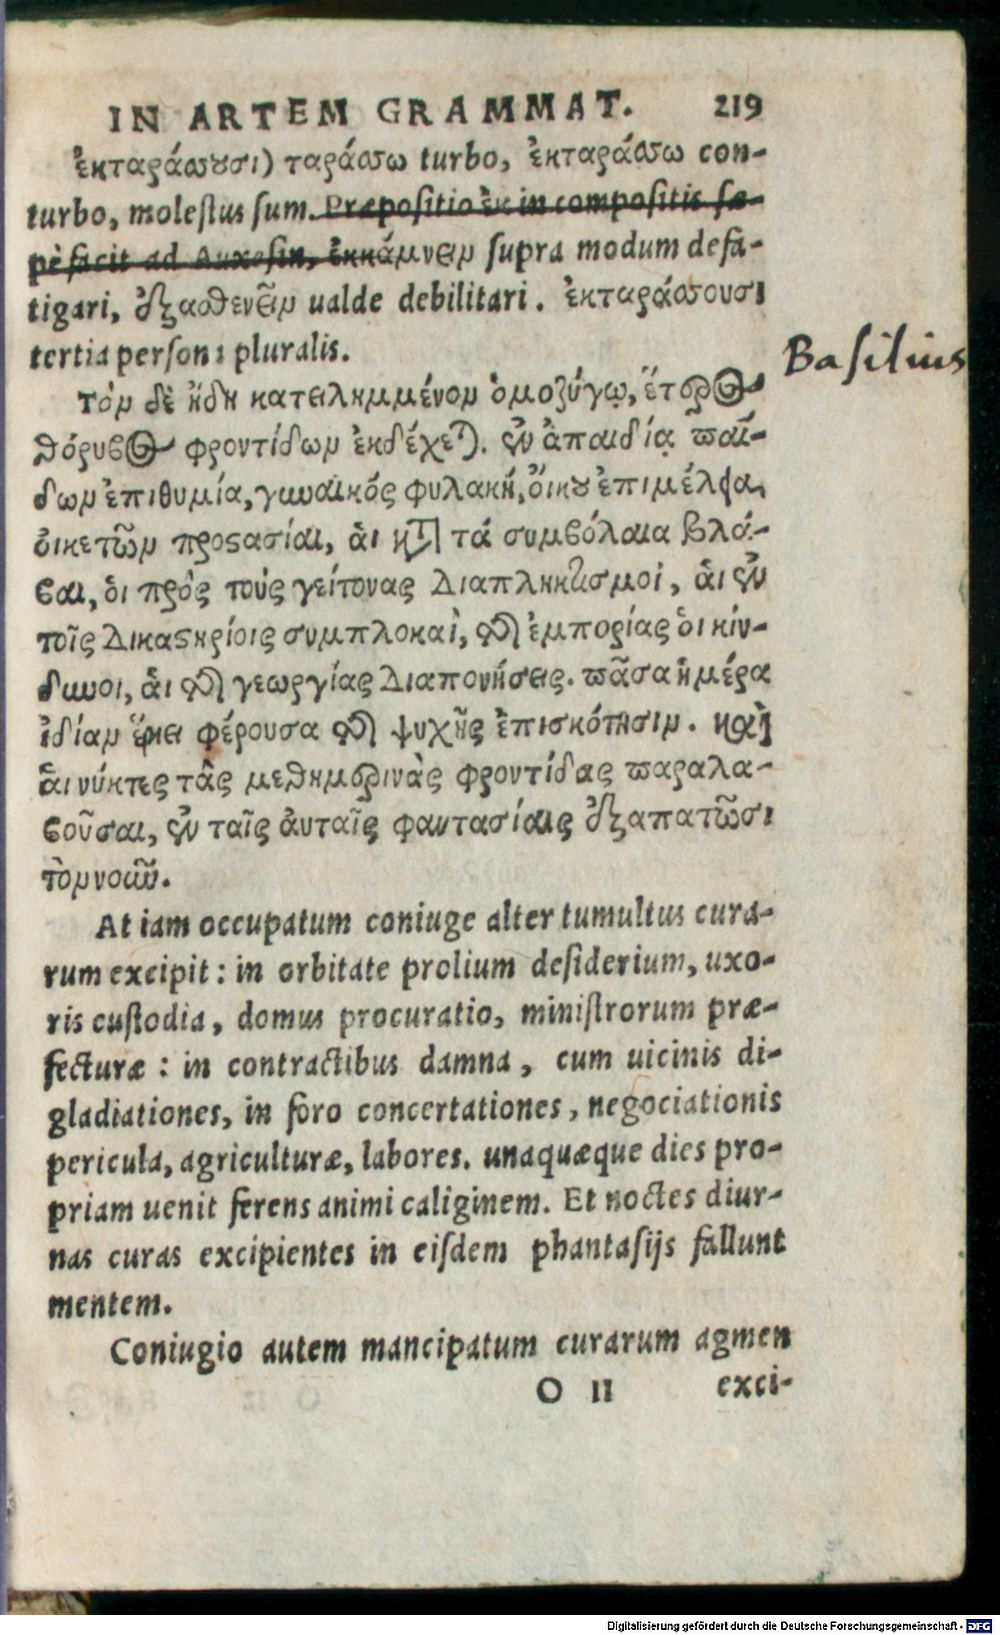 IN ARTEM GRAMMAT. 219
ἐκταράσσουσι) ταράσσω turbo, ἐκταράσσω con-
turbo, molestus sum. Præpositio ἐκ in compositis sæ-
pè facit ad Auxesin, ἐκκάμνειν supra modum defa-
tigari, ἐξασθενεῖν ualde debilitari. ἐκταράσσουσι
tertia persona pluralis.
Basilius
Τὸν δὲ ἤδη κατειλημμένον ὁμοζύγῳ, ἕτερος
θόρυβος φροντίδων ἐκδέχεται. ἐν ἀπαιδίᾳ παί-
δων ἐπιθυμία, γυναικός φυλακή, ὄικου ἐπιμέλεια,
ὀικετῶν προστασίαι, ἁι κατὰ τά συμβόλαια βλά-
βαι, ὁι πρὸς τοὺς γείτονας διαπληκτισμοὶ, ἁι ἐν
τοῖς δικαστηρίοις συμπλοκαὶ, τῆς ἐμπορίας ὁι κίν-
δυνοι, ἁι τῆς γεωργίας διαπονήσεις. πᾶσα ἡμέρα
ἰδίαν ἥκει φέρουσα τῆς ψυχῆς ἐπισκότησιν. καὶ
ἁι νύκτες τὰς μεθημερινὰς φροντίδας παραλα-
βοῦσαι, ἐν ταῖς ἀυταῖς φαντασίαις ἐξαπατῶσι
τὸν νοῦν.
At iam occupatum coniuge alter tumultus cura-
rum excipit: in orbitate prolium desiderium, uxo-
ris custodia, domus procuratio, ministrorum præ-
fecturæ: in contractibus damna, cum uicinis di-
gladiationes, in foro concertationes, negociationis
pericula, agriculturæ, labores. unaquæque dies pro-
priam uenit ferens animi caliginem. Et noctes diur-
nas curas excipientes in eisdem phantasijs fallunt
mentem.
Coniugio autem mancipatum curarum agmen
O II exci-
Digitalisierung gefördert durch die Deutsche Forschungsgemeinschaft - DFG